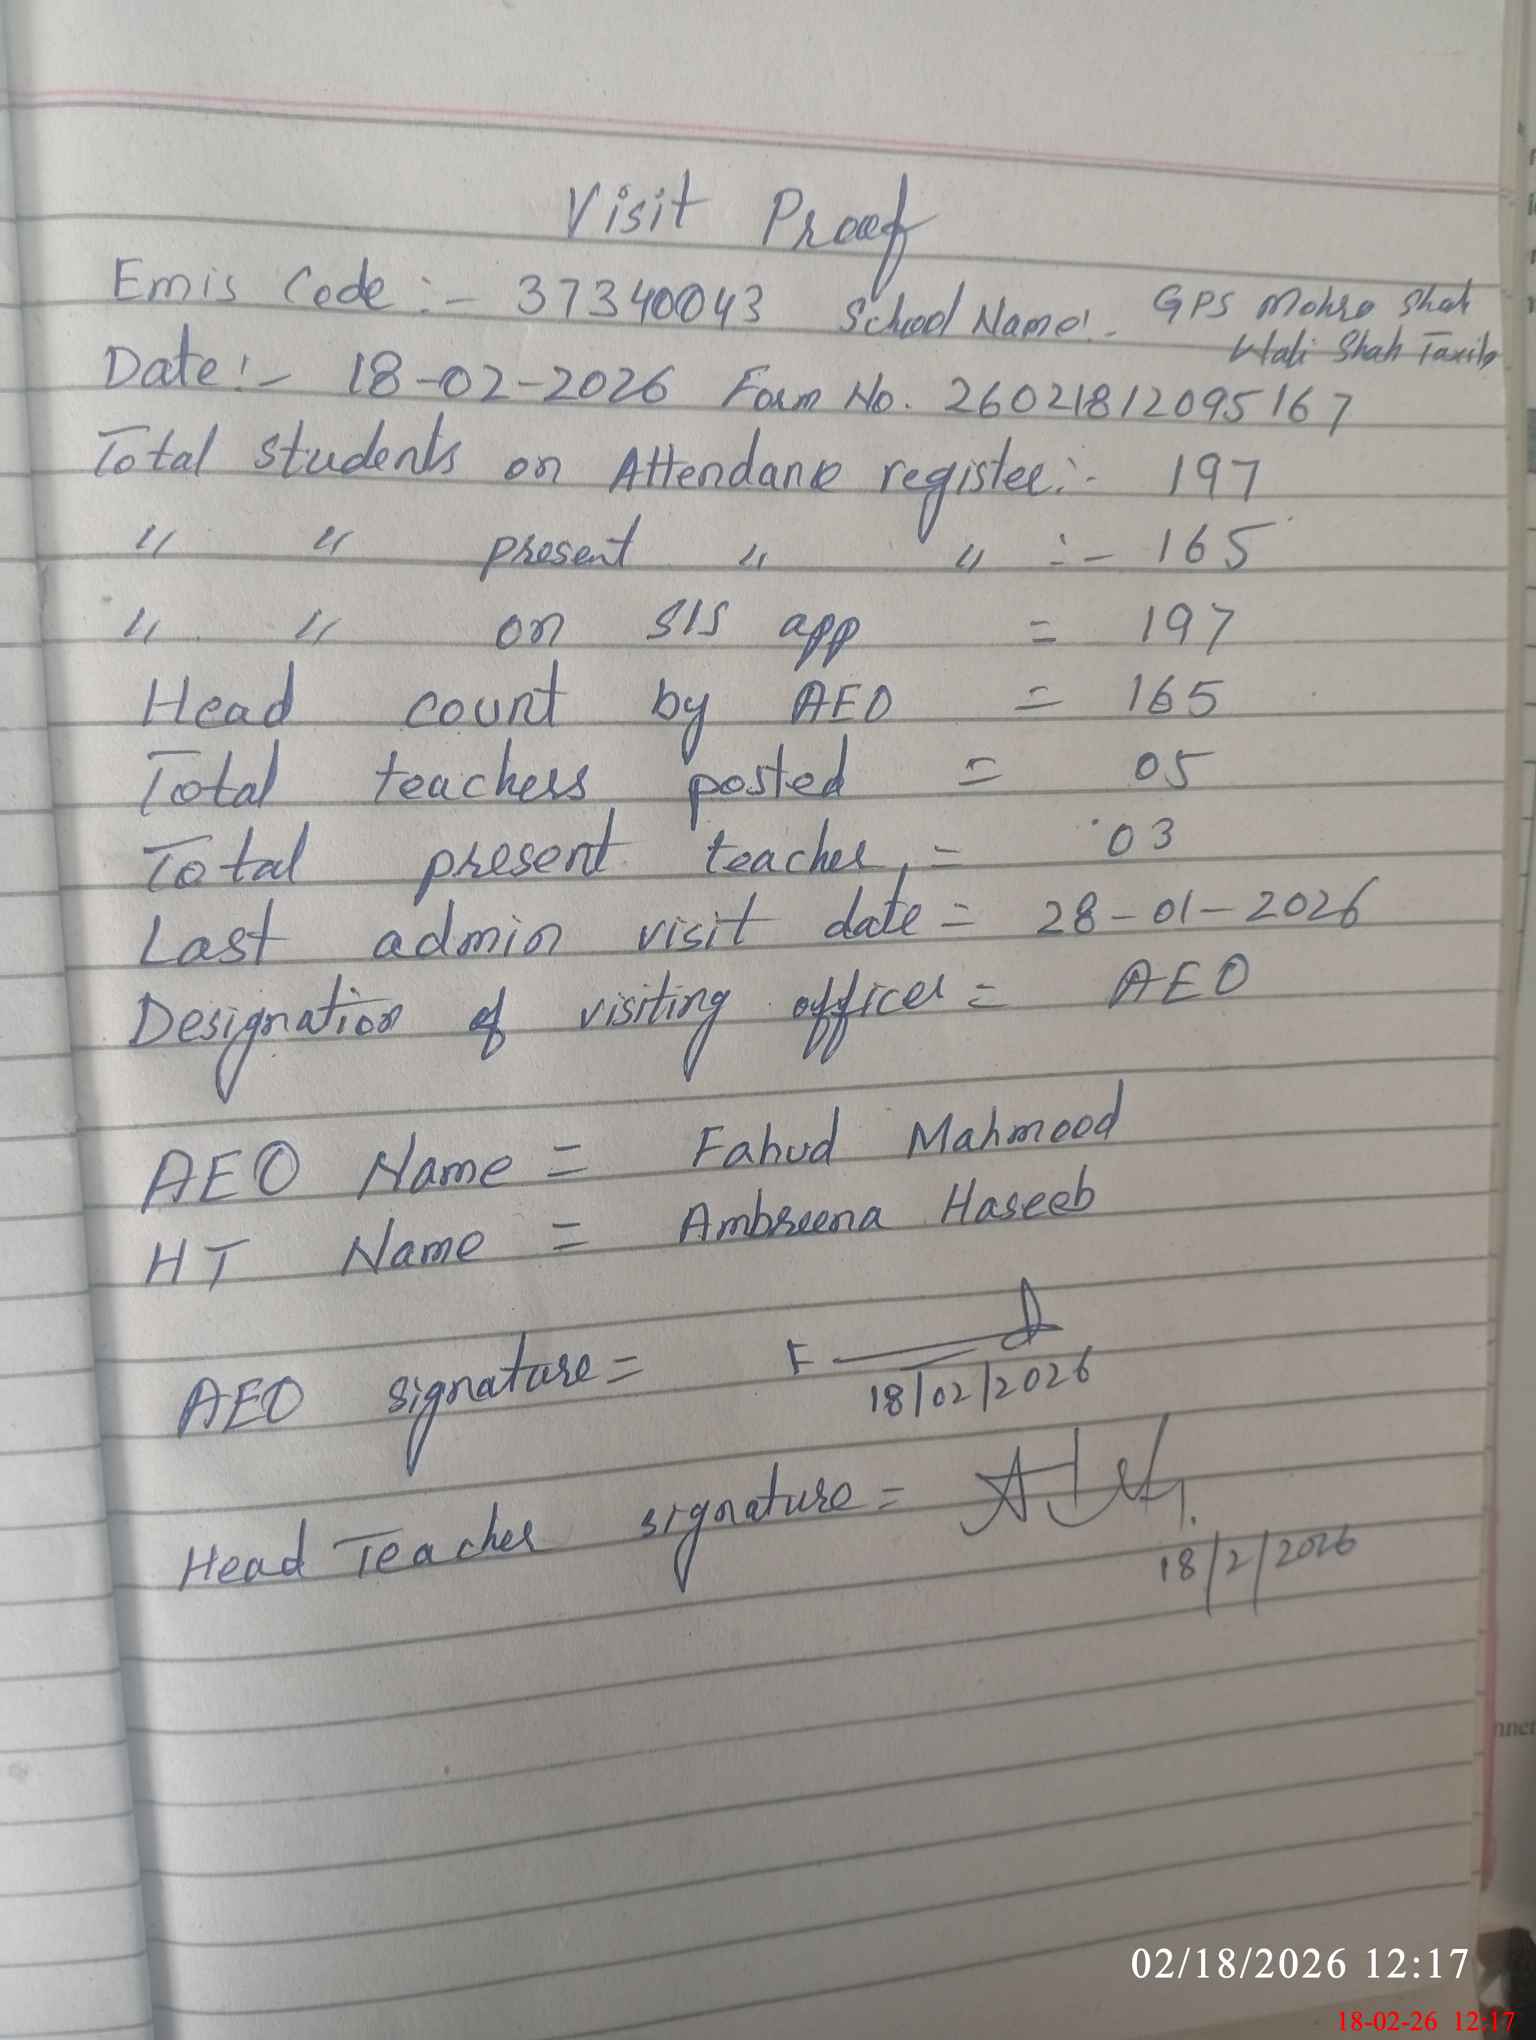 Visit Proof
Emis Code :- 37340043 School Name:- GPS Mohra Shah
Wali Shah Taxila
Date:- 18-02-2026 Form No. 26021812095167
Total students on Attendance register:- 197
" " present " " :- 165
" " on SIS app = 197
Head count by AEO = 165
Total teachers posted = 05
Total present teacher, = 03
Last admin visit date = 28-01-2026
Designation of visiting officer = AEO
AEO Name = Fahud Mahmood
HT Name = Ambreena Haseeb
AEO signature =
18/02/2026
Head Teacher signature =
18/2/2026
02/18/2026 12:17
18-02-26 12:17